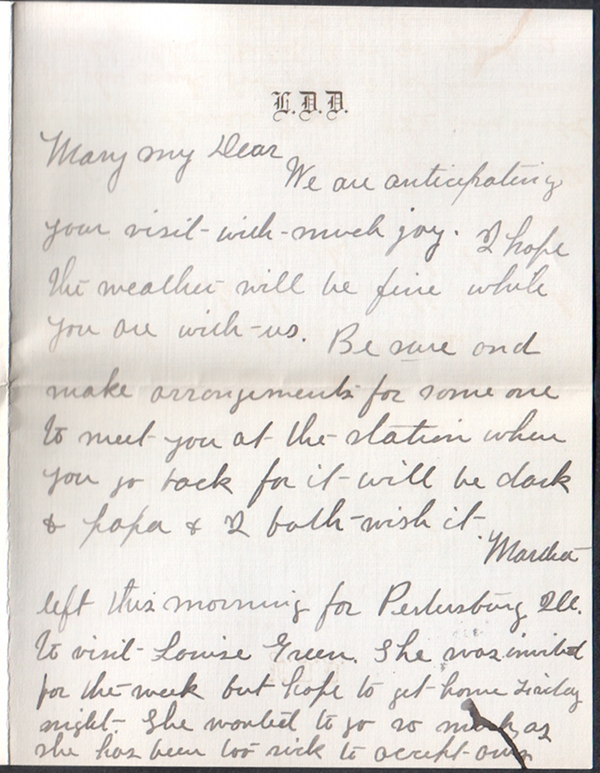 L.D.D.
Mary my Dear
We are anticipating
your visit with much joy. I hope
the weather will be fine while
you are with us. Be sure and
make arrangements for some one
to meet you at the station when
you go back for it will be dark
& papa & I both wish it.
Martha
left this morning for Petersburg Ill.
to visit Louise Green. She was invited
for the week but hope to get home Friday
night. She wanted to go so much as
she has been too sick to accept